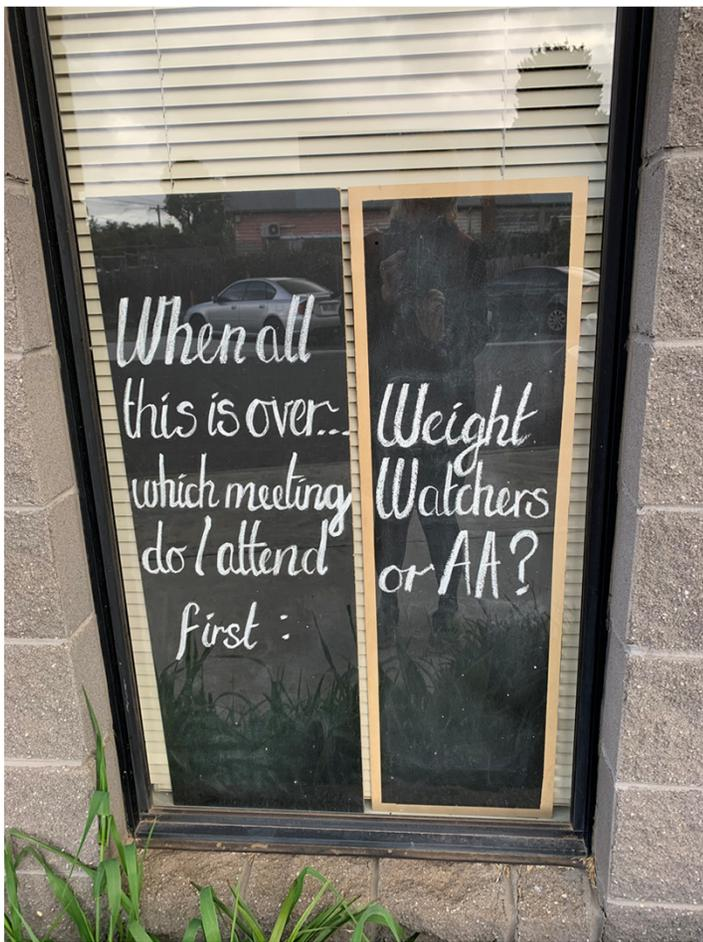 When all
this is over...
which meeting
do I attend
first :
Weight
Watchers
or AA?